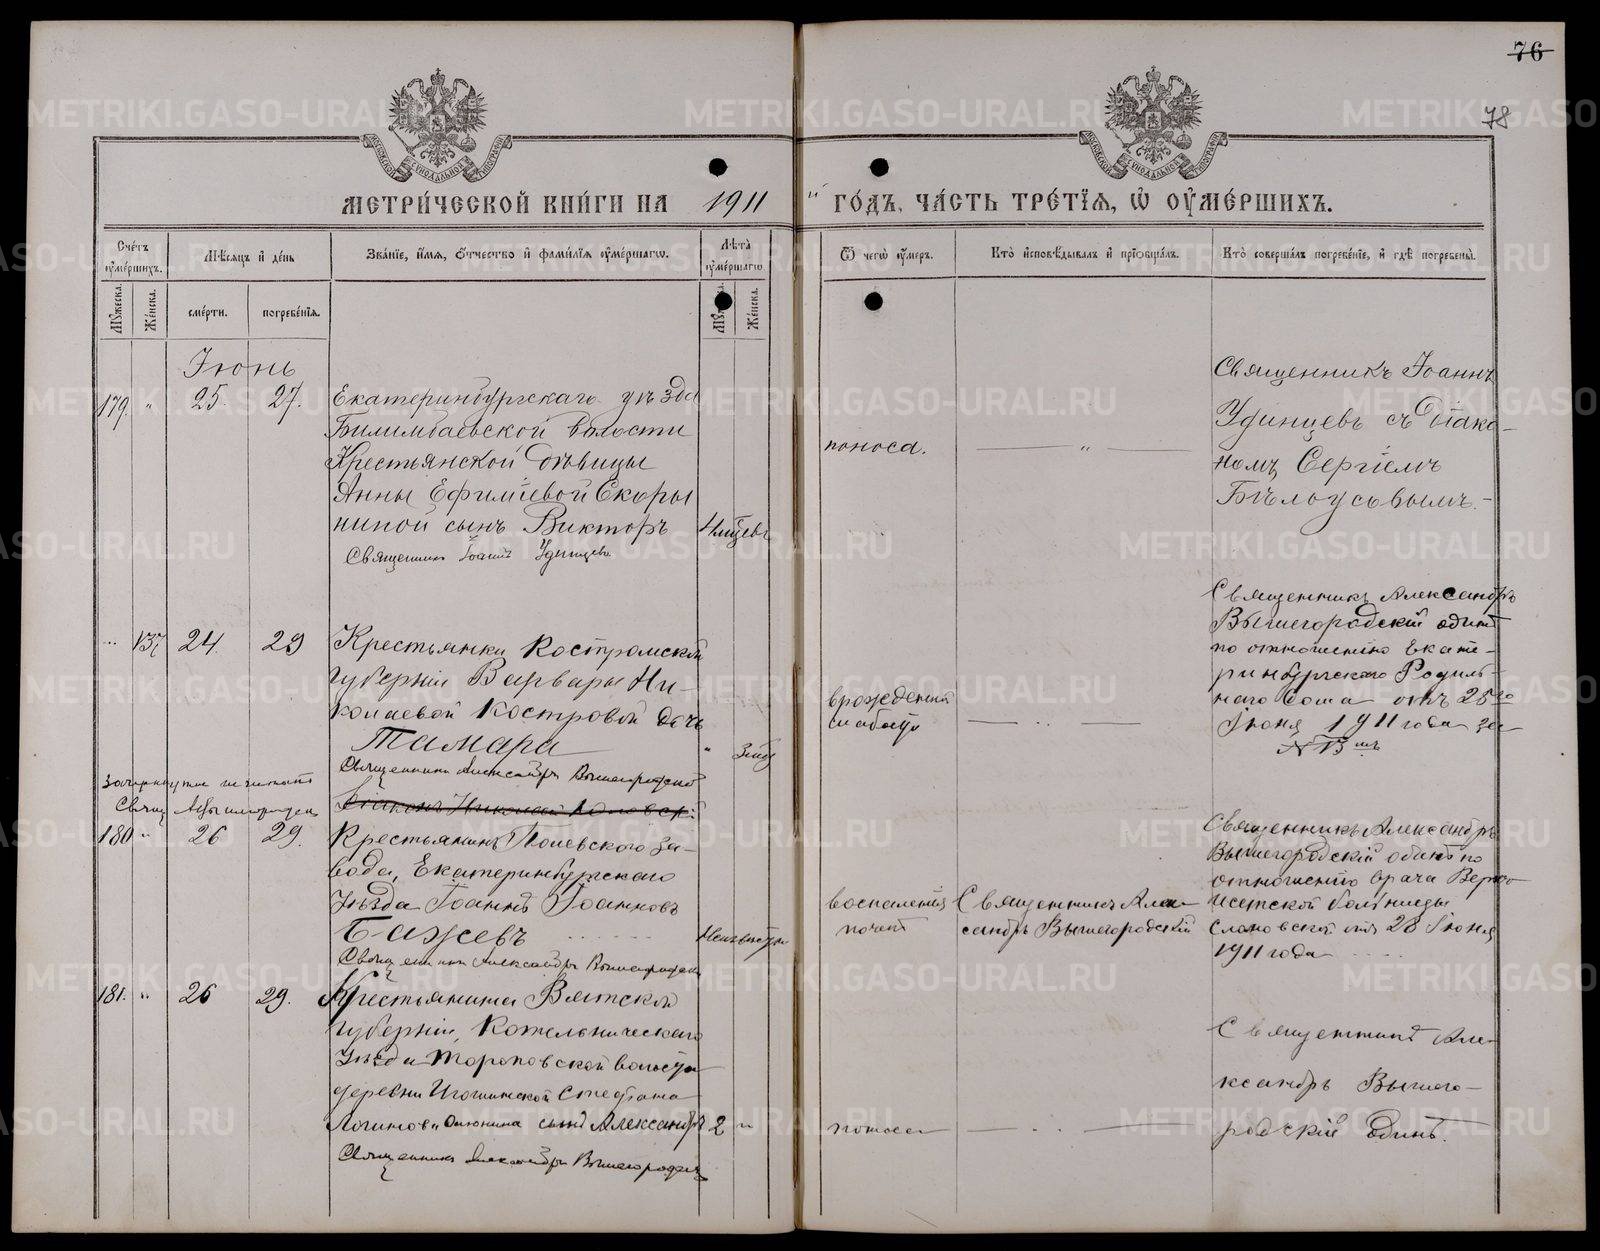 76
78
МЕТРИЧЕСКОЙ КНИГИ НА 1911 й ГОДЪ, ЧАСТЬ ТРЕТІЯ, Ѡ ОУМЕРШИХЪ.
Счетъ оумершихъ.
Мѣсяцъ и день
Званіе, имя, отчество и фамилія оумершагѡ.
Лѣта оумершагѡ
Ѿ чегѡ оумеръ.
Кто исповѣдывалъ и пріобщалъ.
Кто совершалъ погребеніе, и гдѣ погребены.
Мужеска.
Женска.
смерти.
погребенія.
Женска.
Іюнь
179. " 25. 27.
Екатеринбургскаго уѣзда
Билимбаевской волости
Крестьянской дѣвицы
Анны Ефиміевой Скоры
ниной сынъ Викторъ
Священникъ Іоаннъ Удинцевъ
поноса.
Священникъ Іоаннъ
Удинцевъ съ діако-
номъ Сергіемъ
Бѣлоусовымъ.-
137 24. 29
Крестьянки Костромской
губерніи Варвары Ни-
колаевой Костровой дочь
Тамара
Священникъ Александръ Вышегородскій
врожденной
слабости
Священникъ Александръ
Вышегородскій одинъ
по отношенію Екате-
ринбургскаго Родиль-
наго Дома отъ 25го
Іюня 1911 года за
№
зачеркнутое не читать
Діаконъ Николай
180 " 26 29.
Крестьянинъ Полевского за-
вода, Екатеринбургскаго
Уѣзда Іоаннъ Іоанновъ
Бажевъ
Священникъ Александръ Вышегородскій
Неизвѣстны
воспаленія
почекъ
Священникъ Алек-
сандръ Вышегородскій
Священникъ Александръ
Вышегородскій одинъ по
отношенію врача Верхо-
исетской больницы
отъ 28 Іюня
1911 года
181. " 26 29.
Крестьянина Вятской
губерніи, Котельническаго
Уѣзда Тороповской волости
деревни Стефана
Логинова сынъ Александръ
2 "
Священникъ Александръ Вышегородскій
поноса
Священникъ Але-
ксандръ Вышего-
родскій одинъ.
METRIKI.GASO-URAL.RU